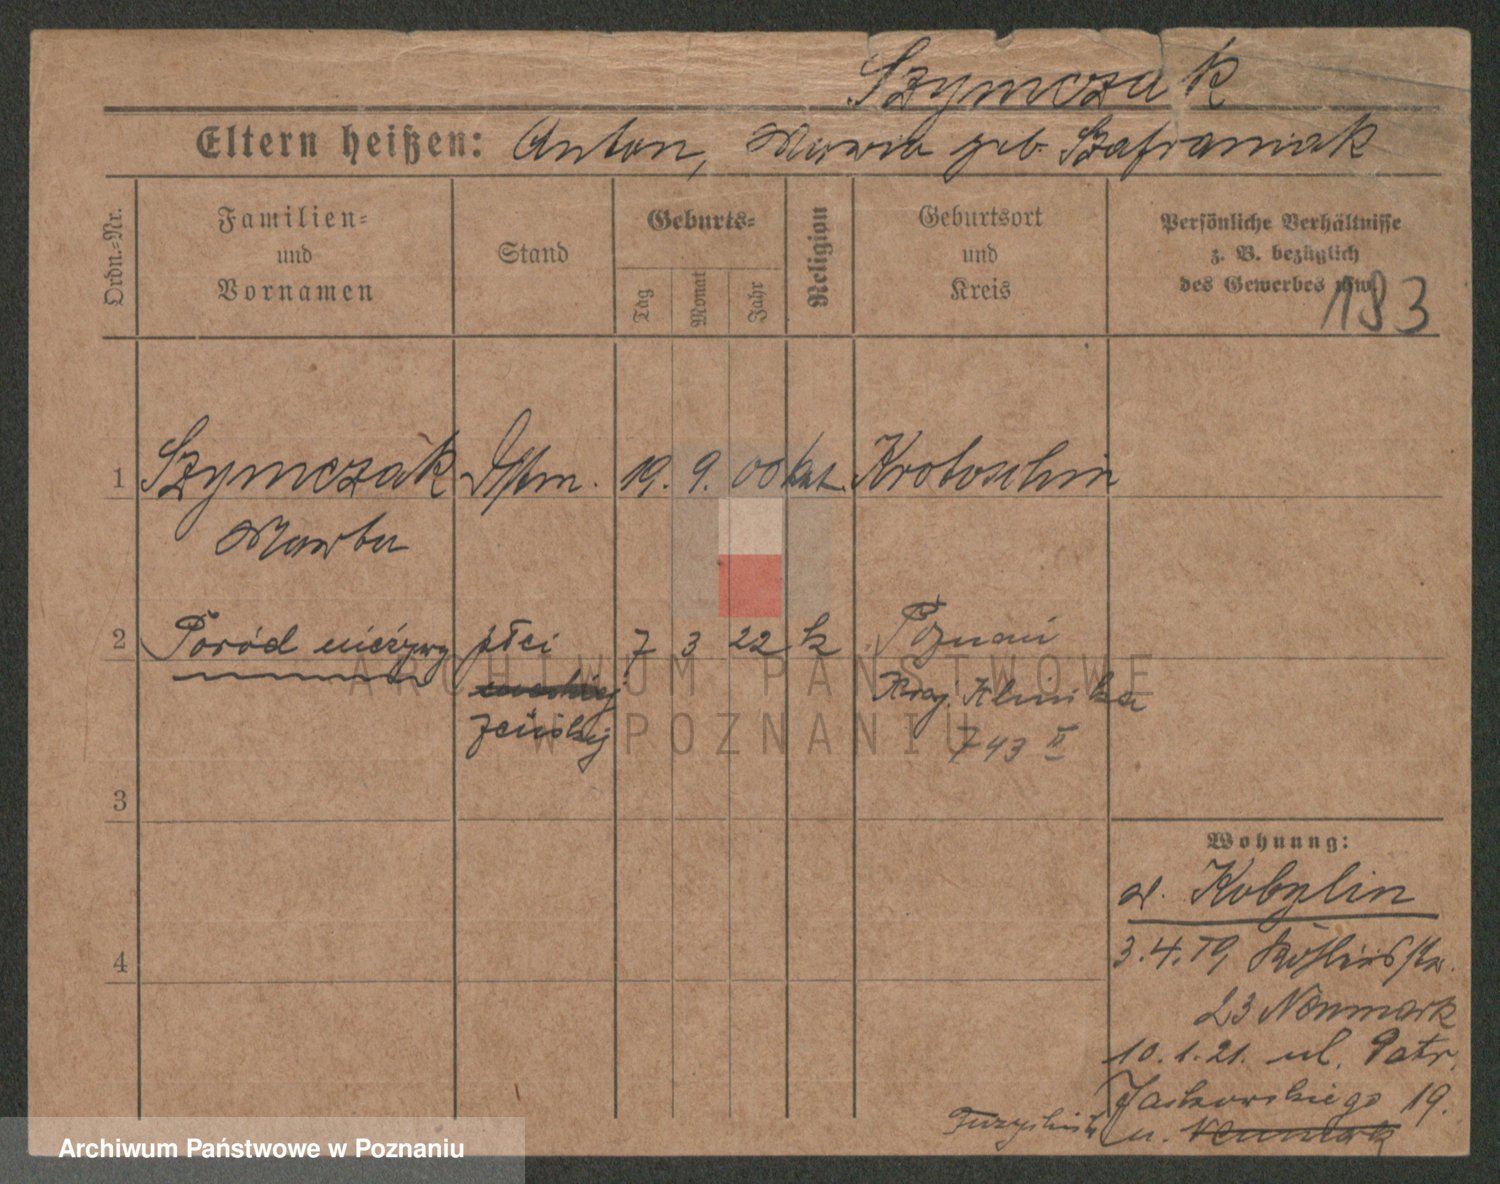 Szymczak
Eltern heißen: Anton, Maria geb. Szafraniak
Ordn.=Nr.
Familien=
und
Vornamen
Stand
Geburts=
Tag
Monat
Jahr
Religion
Geburtsort
und
Kreis
Persönliche Verhältnisse
z. B. bezüglich
des Gewerbes usw.
183
1 Szymczak 19. 9. 00 kat. Krotoschin
Martha
2 Poród nieżywy płci 7 3 22 k Poznań
żeńskiej
Kraj. Klinika
743 II
3
4
Wohnung:
a. Kobylin
3.4.19
23 Neumark
10.1.21. ul. Patr.
Jackowskiego 19.
u. Neumark
ARCHIWUM PAŃSTWOWE
W POZNANIU
Archiwum Państwowe w Poznaniu